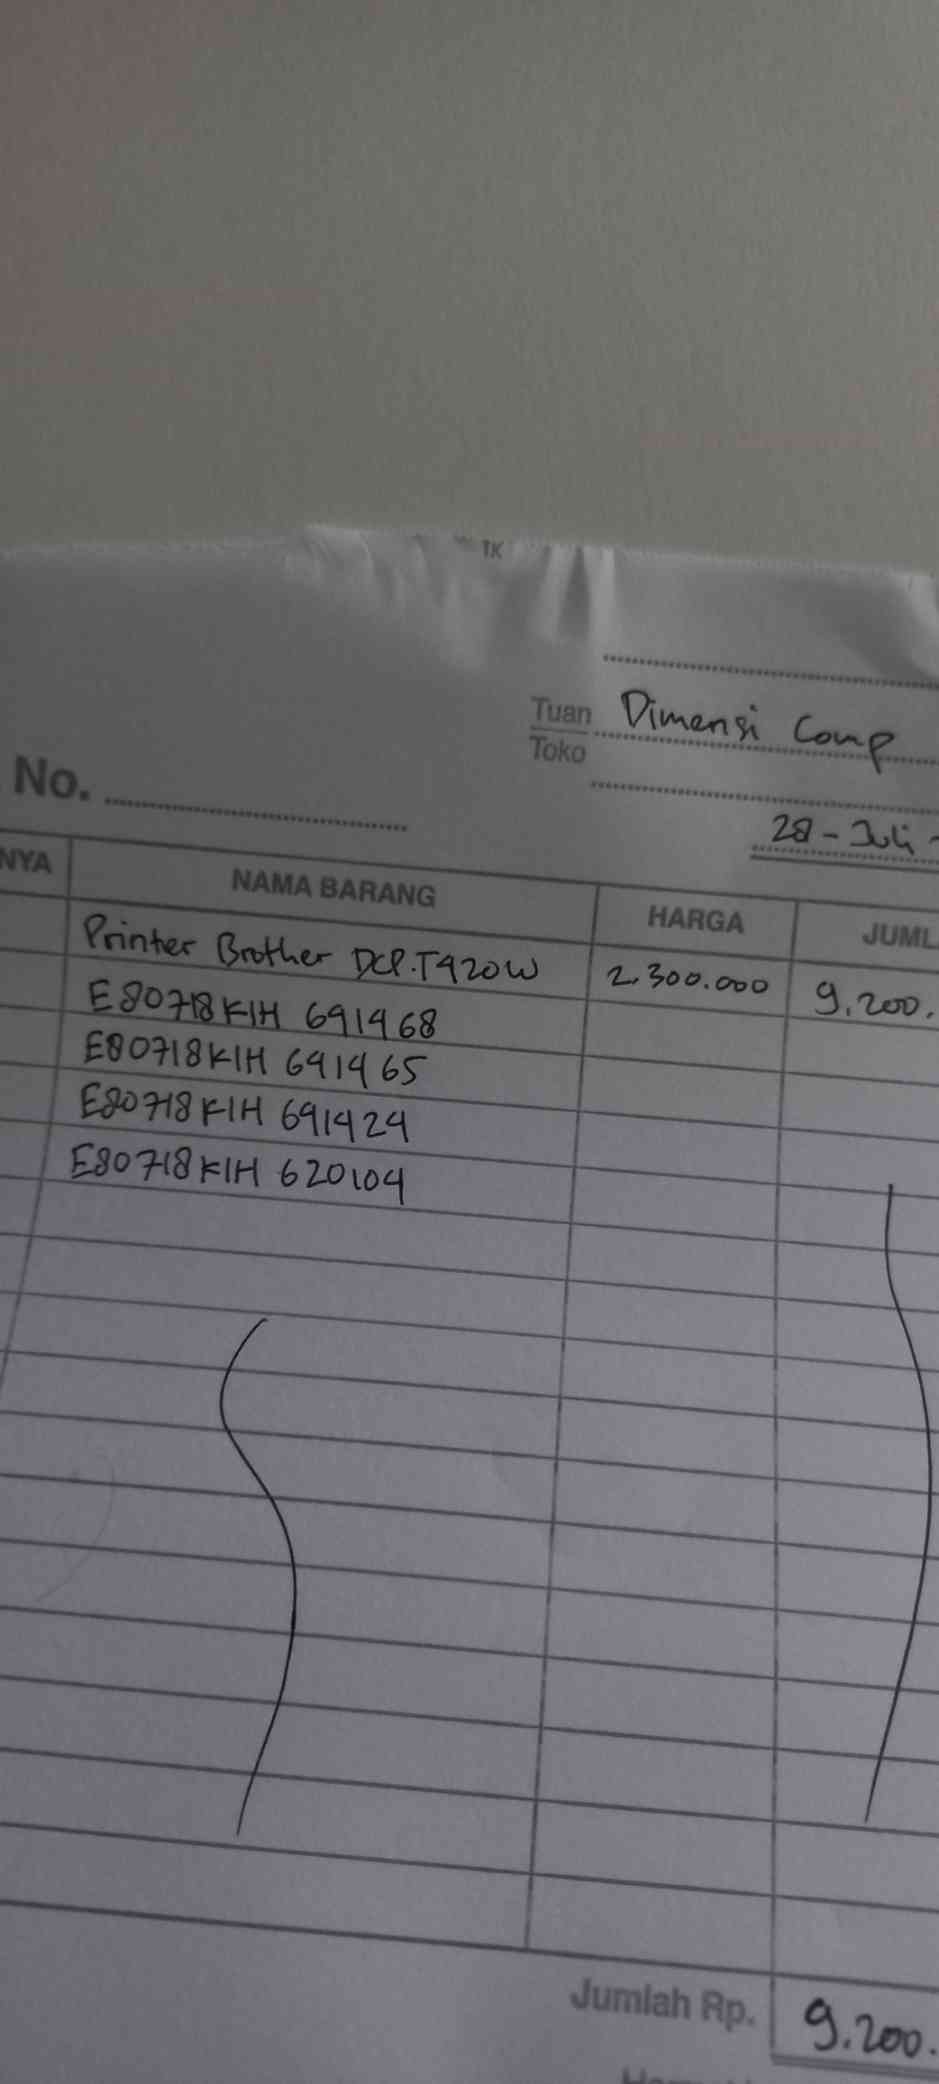 TK
Tuan Dimensi Comp
Toko
No.
28 - Juli -
NYA NAMA BARANG HARGA JUML
Printer Brother DCP.T420W 2.300.000 9.200.
E80718K1H 691468
E80718K1H 691465
E80718K1H 691424
E80718K1H 620104
Jumlah Rp. 9.200.